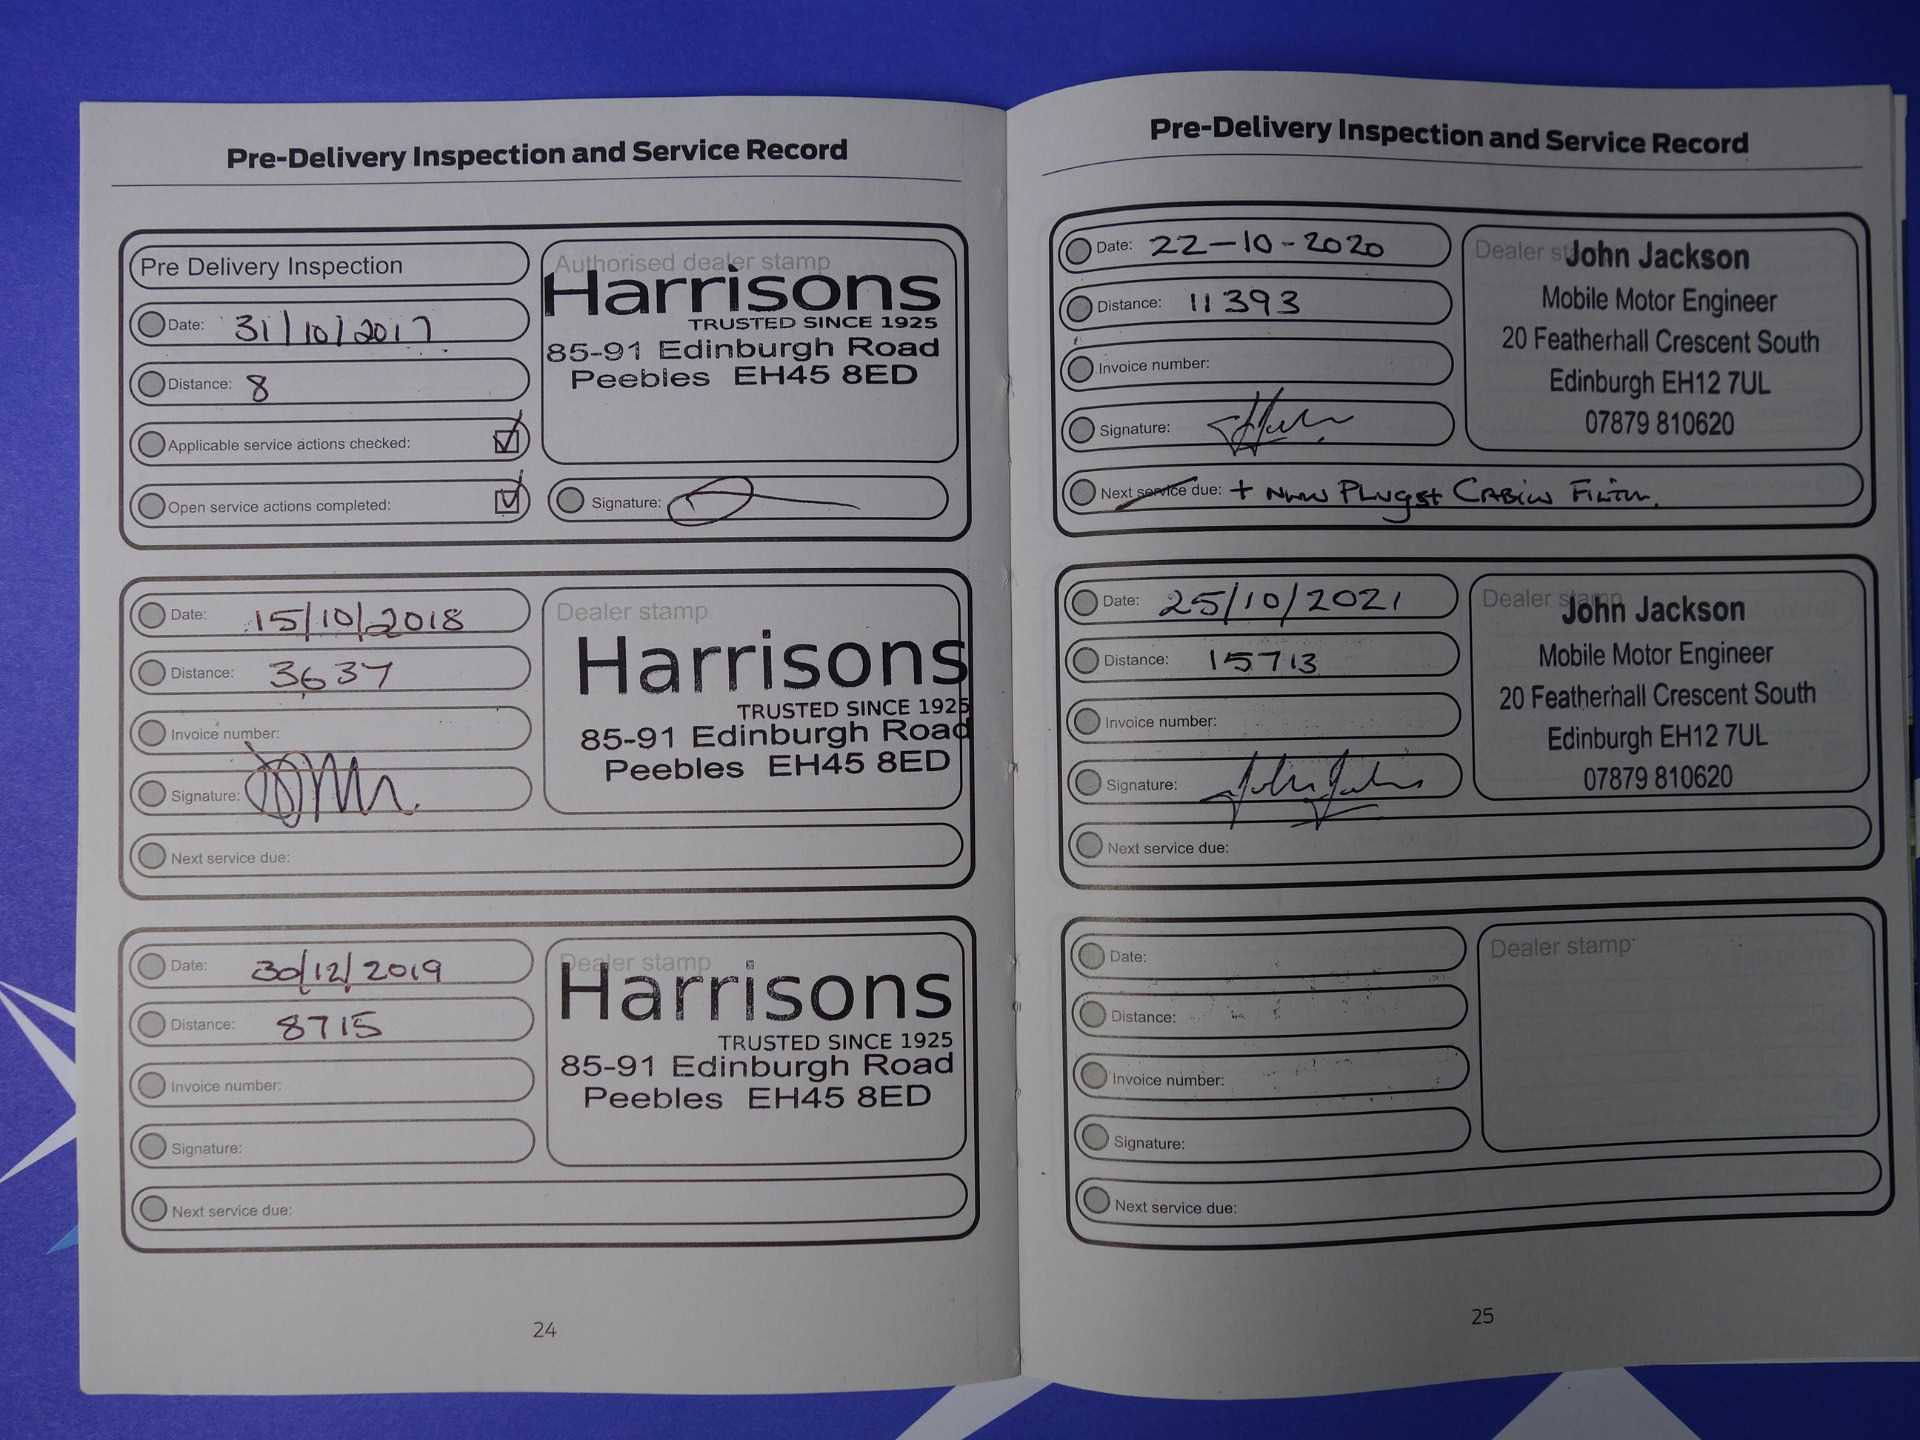 Pre-Delivery Inspection and Service Record
Pre Delivery Inspection
Date: 31/10/2017
Distance: 8
Applicable service actions checked:
Open service actions completed:
Authorised dealer stamp
Harrisons
TRUSTED SINCE 1925
85-91 Edinburgh Road
Peebles EH45 8ED
Signature:
Date: 15/10/2018
Distance: 3637
Invoice number:
Signature:
Next service due:
Dealer stamp
Harrisons
TRUSTED SINCE 1925
85-91 Edinburgh Road
Peebles EH45 8ED
Date: 30/12/2019
Distance: 8715
Invoice number:
Signature:
Next service due:
Dealer stamp
Harrisons
TRUSTED SINCE 1925
85-91 Edinburgh Road
Peebles EH45 8ED
24
Pre-Delivery Inspection and Service Record
Date: 22-10-2020
Distance: 11393
Invoice number:
Signature:
Next service due: + New Plugs + Cabin Filter.
Dealer stamp
John Jackson
Mobile Motor Engineer
20 Featherhall Crescent South
Edinburgh EH12 7UL
07879 810620
Date: 25/10/2021
Distance: 15713
Invoice number:
Signature: John Jackson
Next service due:
Dealer stamp
John Jackson
Mobile Motor Engineer
20 Featherhall Crescent South
Edinburgh EH12 7UL
07879 810620
Date:
Distance:
Invoice number:
Signature:
Next service due:
Dealer stamp
25